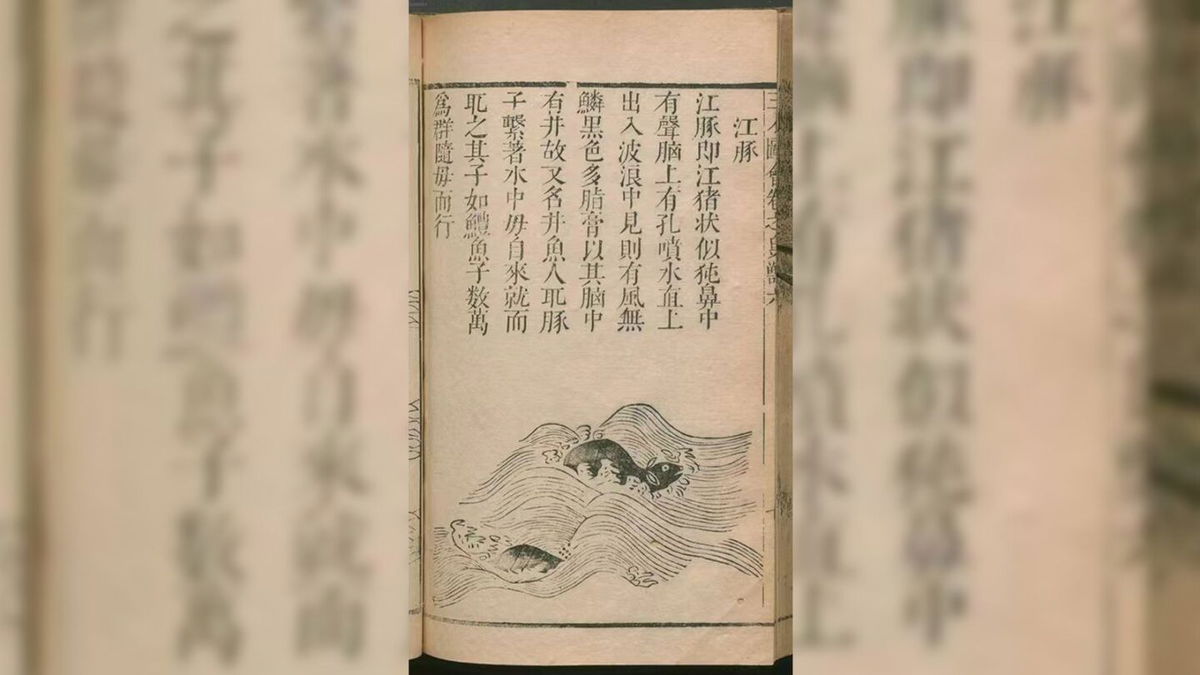 三才圖會
江豚
江豚即江猪状似㹠鼻中
有聲腦上有孔噴水直上
出入波浪中見則有風無
鱗黑色多脂膏以其腦中
有井故又名井魚人取豚
子繫著水中母自來就而
取之其子如鱧魚子数萬
爲群隨母而行